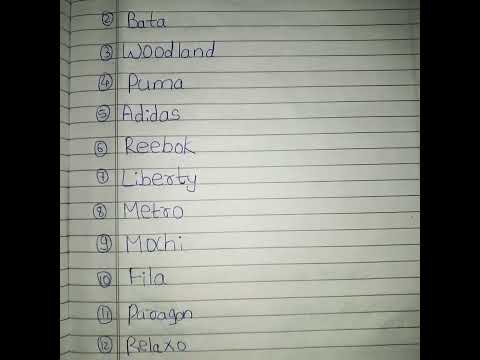 ② Bata
③ Woodland
④ Puma
⑤ Adidas
⑥ Reebok
⑦ Liberty
⑧ Metro
⑨ Mochi
⑩ Fila
⑪ Paragon
⑫ Relaxo